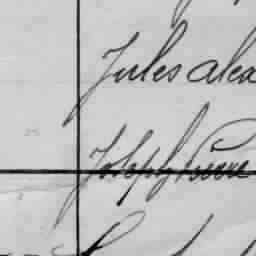 Jules alea
Joseph Pierre